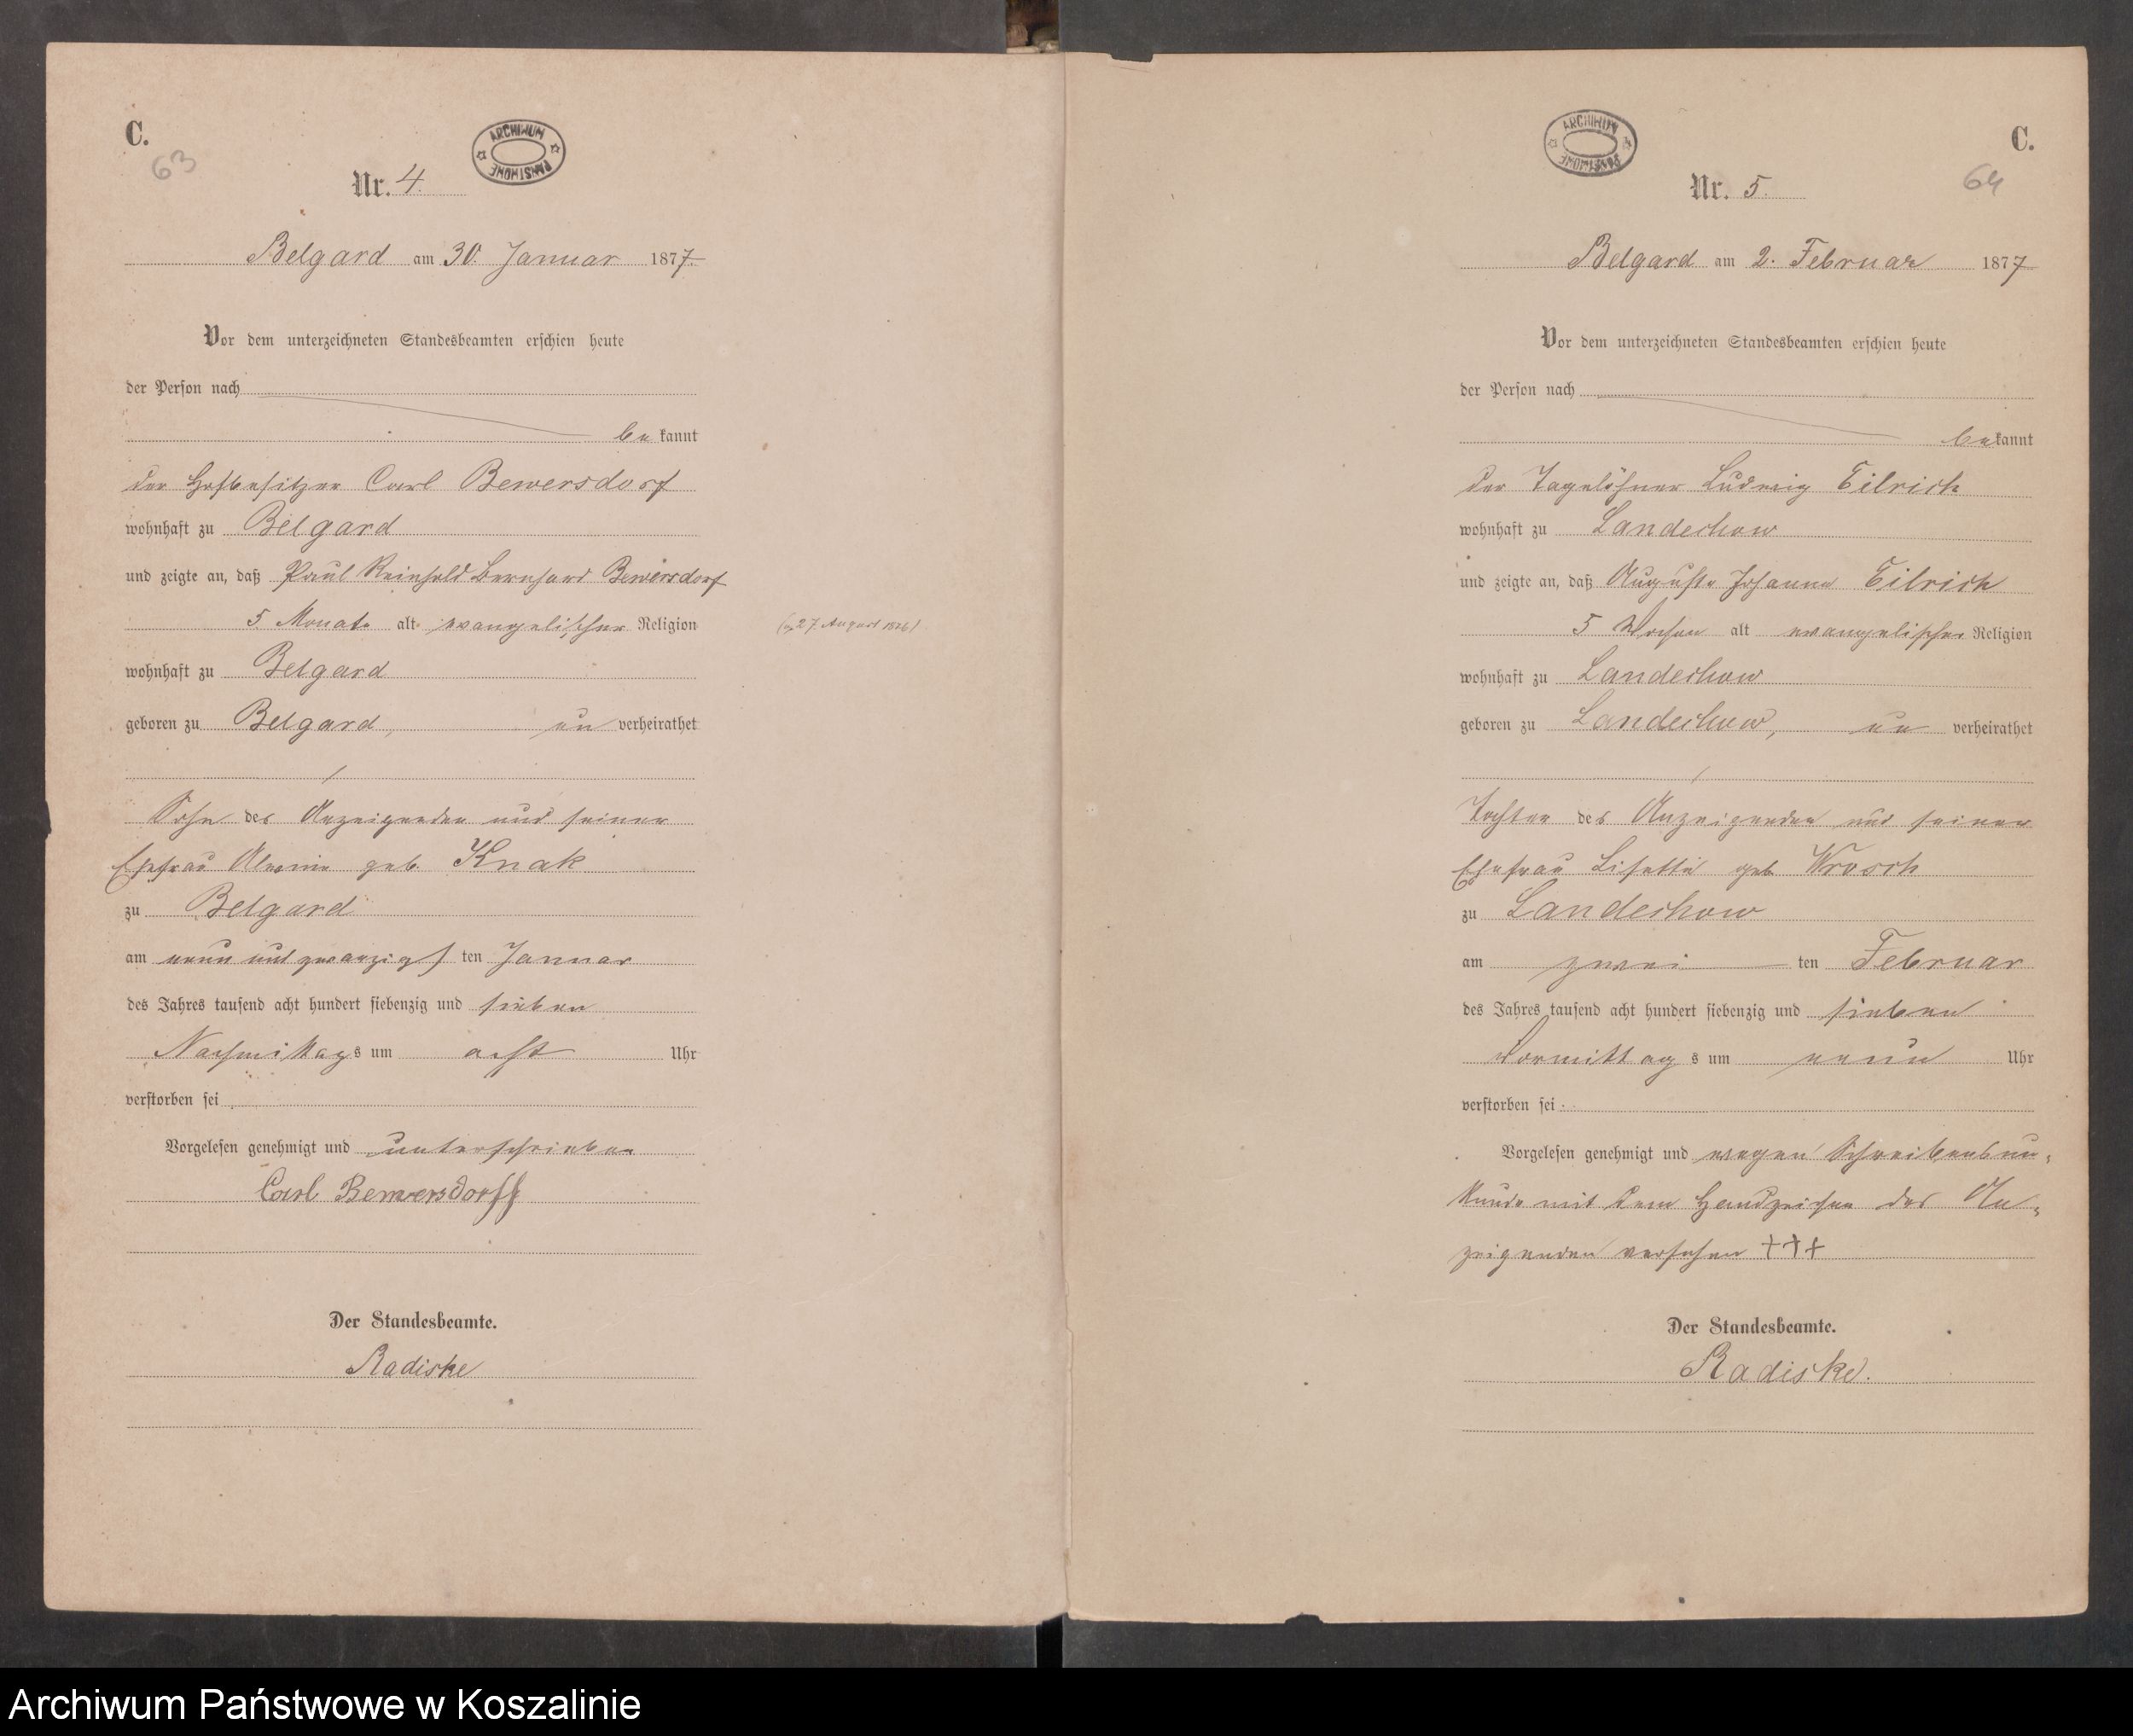 C.
63
ARCHIWUM PAŃSTWOWE
Nr. 4.
Belgard am 30. Januar 1877.
Vor dem unterzeichneten Standesbeamten erschien heute
der Person nach
be kannt
der Hofbesitzer Carl Bewersdorf
wohnhaft zu Belgard
und zeigte an, daß Paul Reinhold Bernhard Bewersdorf
5 Monate alt evangelischer Religion
(27 August 1876)
wohnhaft zu Belgard
geboren zu Belgard, un verheirathet
Sohn des Anzeigenden und seiner
Ehefrau Alwine geb. Knak
zu Belgard
am neun und zwanzigs ten Januar
des Jahres tausend acht hundert siebenzig und sieben
Nachmittags um acht Uhr
verstorben sei
Vorgelesen genehmigt und unterschrieben
Carl Bewersdorff
Der Standesbeamte.
Radiske
C.
64
ARCHIWUM PAŃSTWOWE
Nr. 5.
Belgard am 2. Februar 1877
Vor dem unterzeichneten Standesbeamten erschien heute
der Person nach
be kannt
der Tagelöhner Ludwig Eilrich
wohnhaft zu Landechow
und zeigte an, daß Auguste Johanne Eilrich
5 Wochen alt evangelischer Religion
wohnhaft zu Landechow
geboren zu Landechow, un verheirathet
Tochter des Anzeigenden und seiner
Ehefrau Lisette geb.
zu Landechow
am zwei ten Februar
des Jahres tausend acht hundert siebenzig und sieben
Vormittag s um neun Uhr
verstorben sei
Vorgelesen genehmigt und wegen Schreibensun-
kunde mit dem Handzeichen des An-
zeigenden versehen +++
Der Standesbeamte.
Radiske.
Archiwum Państwowe w Koszalinie